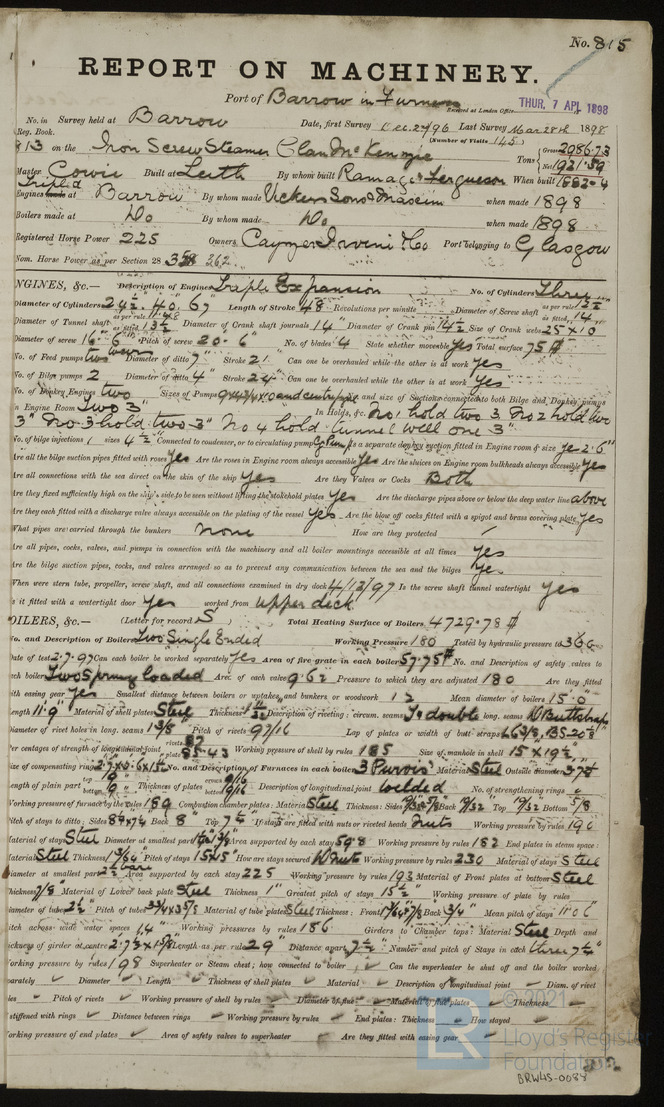 No. 815
REPORT ON MACHINERY.
Port of Barrow in Furness
Received at London Office THUR. 7 APL 1898
No. in Survey held at Barrow Date, first Survey Dec. 24/96 Last Survey Mar 28th 1898
Reg. Book. (Number of Visits 145)
813 on the Iron Screw Steamer Clan McKenzie Tons Gross 2086.73 Net 1921.59
Master Cowie Built at Leith By whom built Ramage & Ferguson When built 1882-4
Engines Tripled at Barrow By whom made Vickers Sons & Maxim when made 1898
Boilers made at Do By whom made Do when made 1898
Registered Horse Power 225 Owners Cayzer Irvine & Co Port belonging to Glasgow
Nom. Horse Power as per Section 28 358 262
ENGINES, &c.— Description of Engines Triple Expansion No. of Cylinders Three
Diameter of Cylinders 24½, 40, 67 Length of Stroke 48 Revolutions per minute Diameter of Screw shaft as per rule 13½ as fitted 14
Diameter of Tunnel shaft as fitted 13½ Diameter of Crank shaft journals 14" Diameter of Crank pin 14½ Size of Crank webs 25 x 10
Diameter of screw 16'-6" Pitch of screw 20.6" No. of blades 4 State whether moveable yes Total surface 75
No. of Feed pumps two Diameter of ditto Stroke 21" Can one be overhauled while the other is at work yes
No. of Bilge pumps 2 Diameter of ditto 4" Stroke 24" Can one be overhauled while the other is at work yes
No. of Donkey Engines two Sizes of Pumps and size of Suctions connected to both Bilge and Donkey pumps
In Engine Room Two 3" In Holds, &c. No 1 hold two 3 No 2 hold two
3" No 3 hold two 3" No 4 hold tunnel well one 3"
No. of bilge injections 1 sizes 4½" Connected to condenser, or to circulating pump Is a separate donkey suction fitted in Engine room & size yes 2.6"
Are all the bilge suction pipes fitted with roses yes Are the roses in Engine room always accessible yes Are the sluices on Engine room bulkheads always accessible yes
Are all connections with the sea direct on the skin of the ship yes Are they Valves or Cocks Both
Are they fixed sufficiently high on the ship's side to be seen without lifting the stokehold plates yes Are the discharge pipes above or below the deep water line above
Are they each fitted with a discharge valve always accessible on the plating of the vessel yes Are the blow off cocks fitted with a spigot and brass covering plate yes
What pipes are carried through the bunkers none How are they protected
Are all pipes, cocks, valves, and pumps in connection with the machinery and all boiler mountings accessible at all times yes
Are the bilge suction pipes, cocks, and valves arranged so as to prevent any communication between the sea and the bilges yes
When were stern tube, propeller, screw shaft, and all connections examined in dry dock 4/12/97 Is the screw shaft tunnel watertight yes
Is it fitted with a watertight door yes worked from upper deck
BOILERS, &c.— (Letter for record S) Total Heating Surface of Boilers 4729.78
No. and Description of Boilers Two Single Ended Working Pressure 180 Tested by hydraulic pressure to 360
Date of test 2.7.97 Can each boiler be worked separately yes Area of fire grate in each boiler 57.75 No. and Description of safety valves to
each boiler Two Spring loaded Area of each valve 9.62 Pressure to which they are adjusted 180 Are they fitted
with easing gear yes Smallest distance between boilers or uptakes and bunkers or woodwork 12 Mean diameter of boilers 15'0"
Length 11'9" Material of shell plates Steel Thickness Description of riveting: circum. seams double long. seams
Diameter of rivet holes in long. seams 1 3/8" Pitch of rivets 9 7/16 Lap of plates or width of butt straps
Per centages of strength of longitudinal joint rivets 87 plate 85.43 Working pressure of shell by rules 185 Size of manhole in shell 15 x 19½"
Size of compensating ring No. and Description of Furnaces in each boiler 3 Purves' Material Steel Outside diameter
Length of plain part top bottom Thickness of plates crown 9/16 bottom 9/16 Description of longitudinal joint welded No. of strengthening rings
Working pressure of furnace by the rules 189 Combustion chamber plates: Material Steel Thickness: Sides Back 19/32 Top 19/32 Bottom 5/8
Pitch of stays to ditto: Sides Back 8" Top 7½" If stays are fitted with nuts or riveted heads nuts Working pressure by rules 190
Material of stays Steel Diameter at smallest part Area supported by each stay 59.8 Working pressure by rules 182 End plates in steam space:
Material Steel Thickness Pitch of stays 15 x 15" How are stays secured Working pressure by rules 230 Material of stays Steel
Diameter at smallest part Area supported by each stay 225 Working pressure by rules 193 Material of Front plates at bottom Steel
Thickness 7/8 Material of Lower back plate Steel Thickness 1" Greatest pitch of stays 15½" Working pressure of plate by rules
Diameter of tubes 2½" Pitch of tubes Material of tube plates Steel Thickness: Front Back 3/4" Mean pitch of stays
Pitch across wide water spaces 14" Working pressures by rules 186 Girders to Chamber tops: Material Steel Depth and
thickness of girder at centre Length as per rule 29" Distance apart 7½" Number and pitch of Stays in each three 7¼"
Working pressure by rules 198 Superheater or Steam chest; how connected to boiler Can the superheater be shut off and the boiler worked
separately Diameter Length Thickness of shell plates Material Description of longitudinal joint Diam. of rivet
holes Pitch of rivets Working pressure of shell by rules Diameter of flue Material of flue plates Thickness
If stiffened with rings Distance between rings Working pressure by rules End plates: Thickness How stayed
Working pressure of end plates Area of safety valves to superheater Are they fitted with easing gear
© 2021
LR
Lloyd's Register
Foundation
BRW45-0084